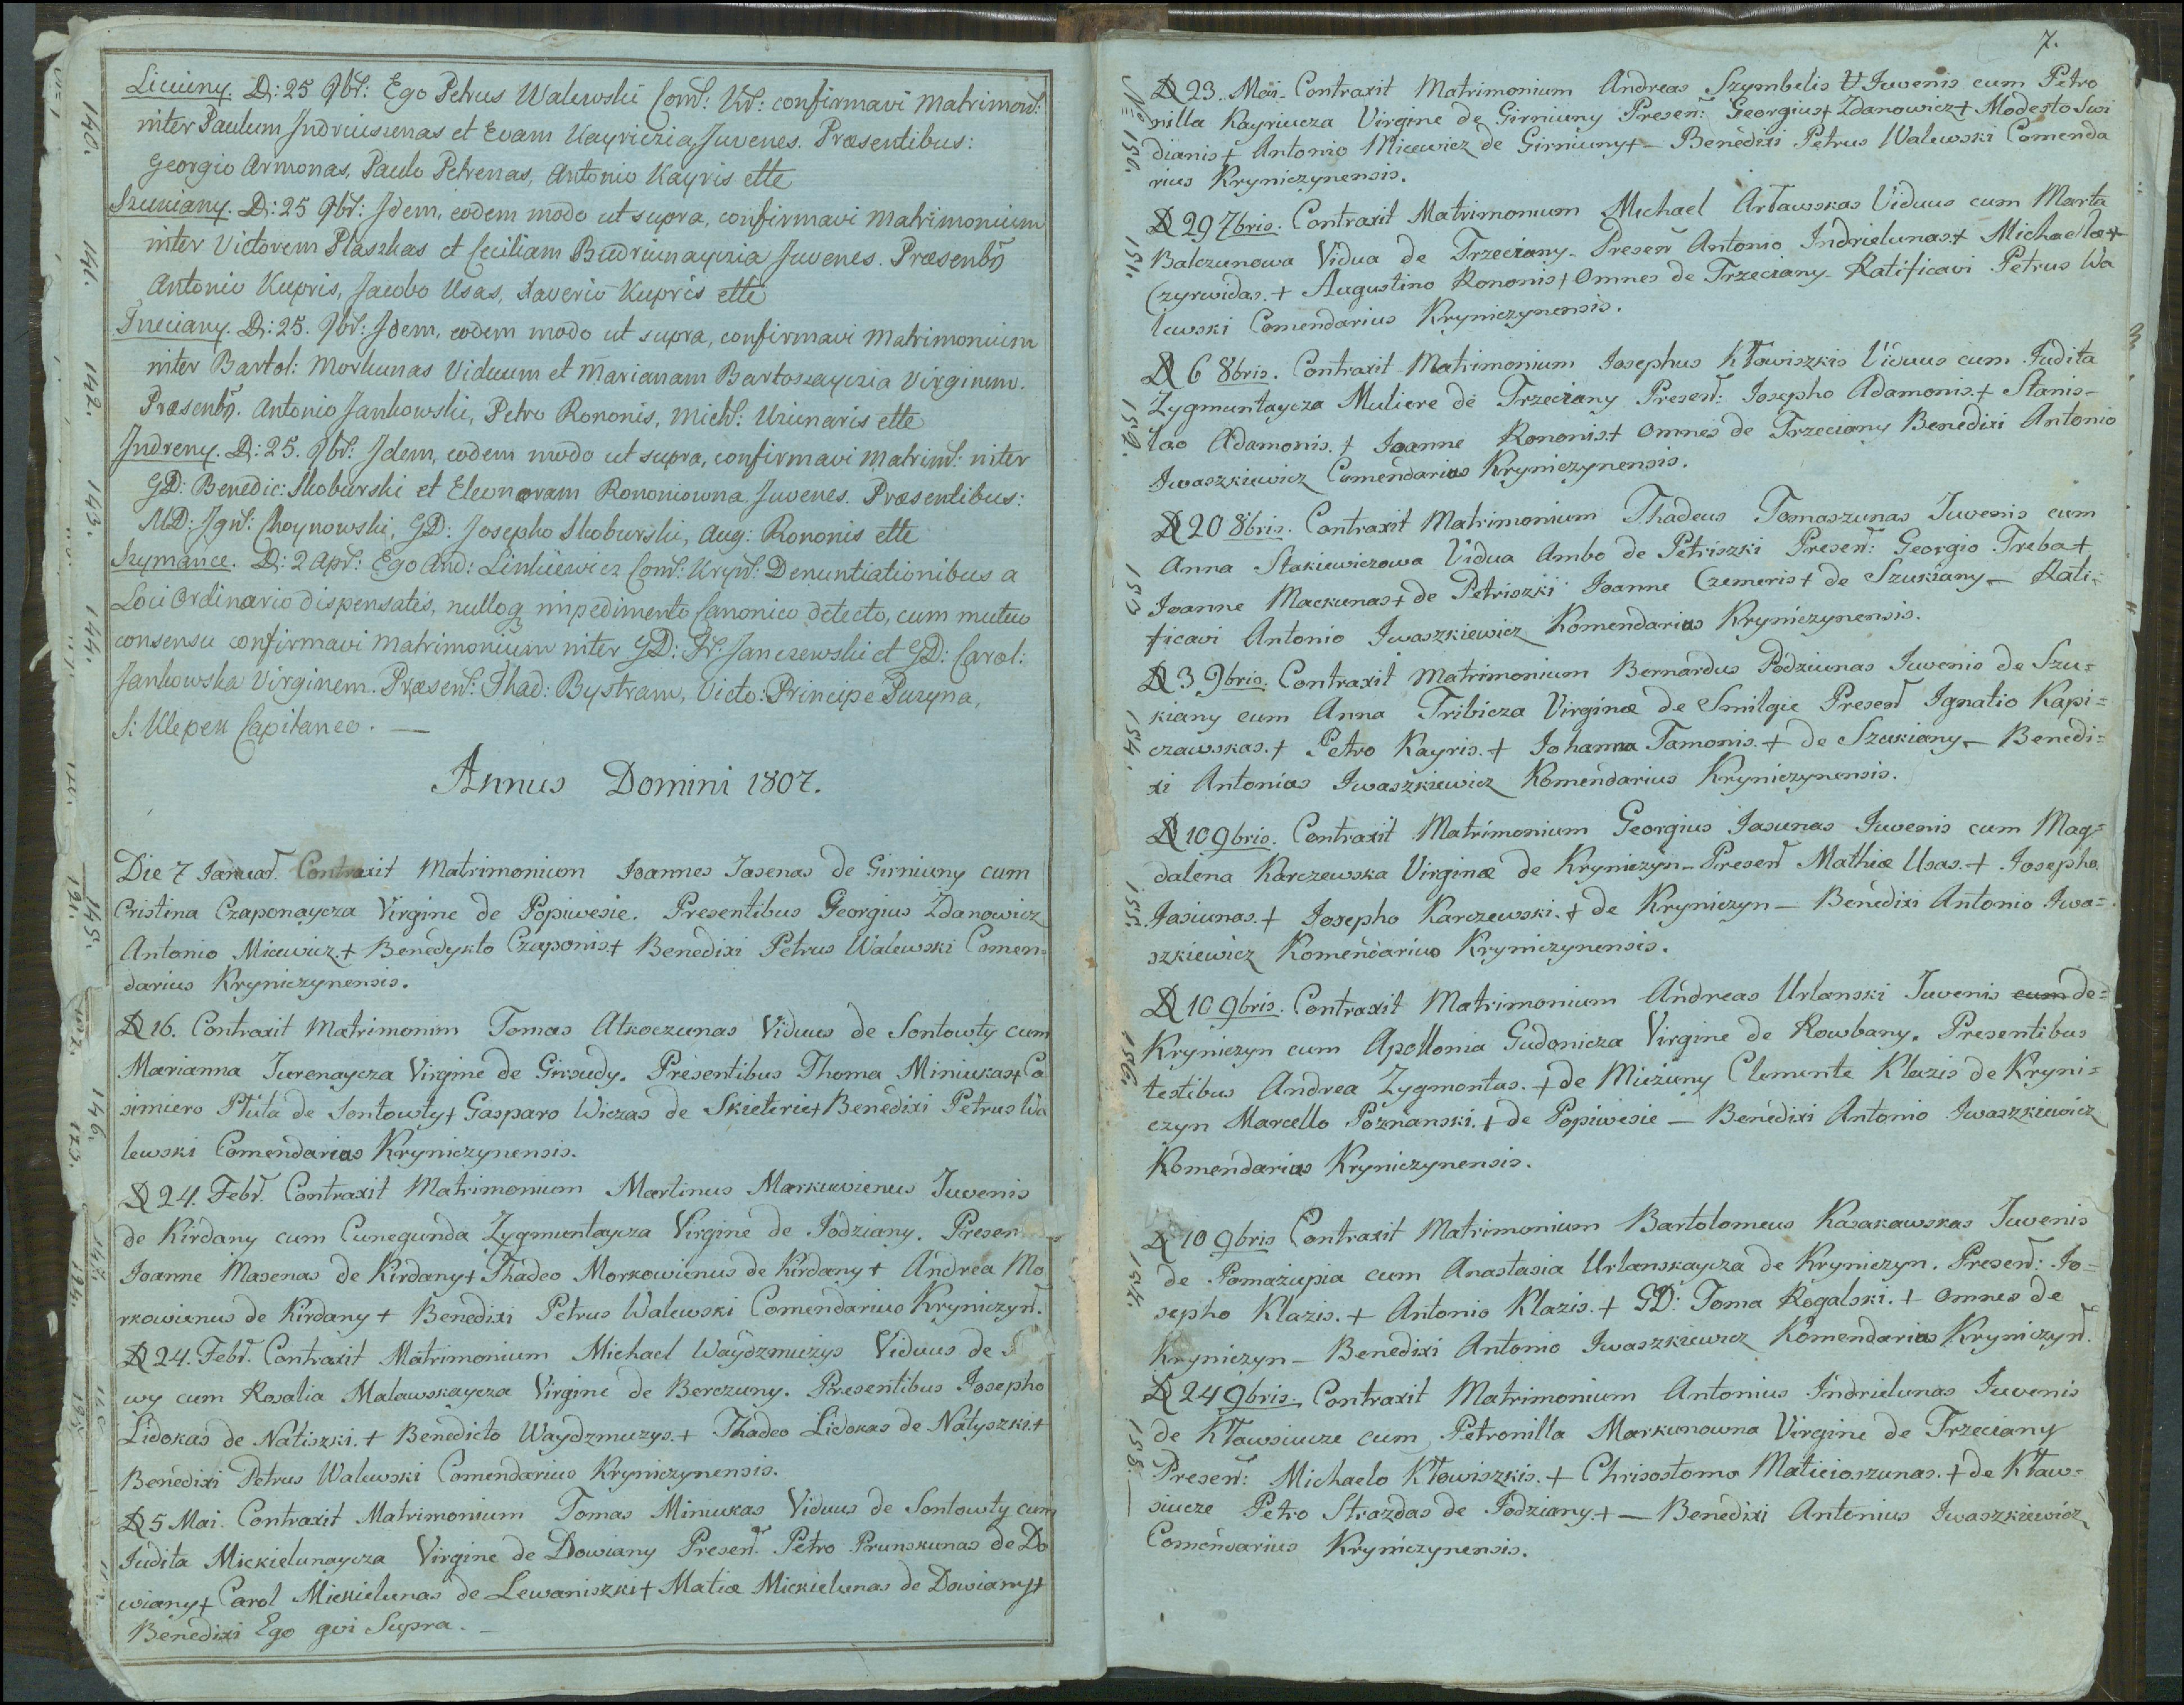 Liciuny. D: 25 9br̃: Ego Petrus Walewski Com̃: Kr̃: confirmavi Matrimon̄:
inter Paulum Indriusienas et Evam Kayriczia, Juvenes. Præsentibus:
Georgio Armonas, Paulo Petrenas, Antonio Kayris ette
Szuniany. D: 25 9br̃: Idem, eodem modo ut supra, confirmavi Matrimonium
inter Victorem Plaszkas et Ceciliam Budriunayczia Juvenes. Præsenbs̃
Antonio Kupris, Jacobo Usas, Xaverio Kupris ette
Treciany. D: 25. 9br̃: Idem, eodem modo ut supra, confirmavi Matrimonium
inter Bartol: Morkunas Viduum et Marianam Bartoszayczia Virginem.
Præsenbs̃. Antonio Jankowski, Petro Rononis, Mich̃: Uziunaris ette
Indreny. D: 25. 9br̃: Idem, eodem modo ut supra, confirmavi Matrim̃: inter
GD: Benedic: Skoburski et Eleonoram Rononiowna, Juvenes. Præsentibus:
MD: Ign̄: Choynowski, GD: Josepho Skoburski, Aug: Rononis ette
Szymance. D: 2 Apr̃: Ego And: Linkiewicz Com̃: Kryn̄: Denuntiationibus a
Loci Ordinario dispensatis, nulloq̃ impedimento Canonico detecto, cum mutuo
consensu confirmavi Matrimonium inter GD: Fr̃: Janczewski et GD: Carol:
Jankowska Virginem. Præsen̄: Thad: Bystram, Victo: Principe Puzyna,
S: Klepen Capitaneo. —
Annus Domini 1807.
Die 7 Januar̃. Contraxit Matrimonium Joannes Jasenas de Girniuny cum
Cristina Czaponaycza Virgine de Popiwesie. Presentibus Georgius Zdanowicz
Antonio Micewicz + Benedykto Czaponis + Benedixi Petrus Walewski Comen=
darius Kryniczynensis.
D 16. Contraxit Matrimonim Tomas Atkoczunas Viduus de Sontowty cum
Marianna Jurenaycza Virgine de Girsudy. Presentibus Thoma Miniukas + Ca
simiero Ptula de Sontowty + Gasparo Wiczas de Skieterie + Benedixi Petrus Wa
lewski Comendarius Kryniczynensis.
D 24. Febr̃. Contraxit Matrimonium Martinus Markowienus Juvenis
de Kirdany cum Cunegunda Zygmuntaycza Virgine de Jodziany. Presen
Joanne Masenas de Kirdany + Thadeo Morkowienus de Kirdany + Andrea Mo
rkowienus de Kirdany + Benedixi Petrus Walewski Comendarius Kryniczyn̄.
D 24. Febr̃. Contraxit Matrimonium Michael Waydzmuzys Viduus de
wy cum Rosalia Malawskaycza Virgine de Berczuny. Presentibus Josepho
Lidokas de Natiszki. + Benedicto Waydzmuzys. + Thadeo Lidokas de Natyszki. +
Benedixi Petrus Walewski Comendarius Kryniczynensis.
D 5 Mai. Contraxit Matrimonium Tomas Miniukas Viduus de Sontowty cum
Judita Mickielunaycza Virgine de Dowiany Presen̄. Petro Prunskunas de Do
wiany + Carol Mickielunas de Lewaniszki + Matiæ Mickielunas de Dowiany +
Benedixi Ego qvi Supra. —
140.
141.
142.
143.
144.
145.
146.
147.
7.
D 23. Mai. Contraxit Matrimonium Andreas Szymbelis Juvenis cum Petro
nilla Kayriucza Virgine de Girniuny Presen̄: Georgius + Zdanowicz + Modesto Swi
dianis + Antonio Micewicz de Girniuny + — Benedixi Petrus Walewski Comenda
rius Kryniczynensis.
D 29 7bris. Contraxit Matrimonium Michael Artawskas Viduus cum Marta
Balczunowa Vidua de Trzeciany. Presen̄ Antonio Indrielunas. + Michaelo +
Czyrwidas. + Augustino Rononis + Omnes de Trzeciany. Ratificavi Petrus Wa
lewski Comendarius Kryniczynensis.
D 6 8bris. Contraxit Matrimonium Josephus Kłowiszkis Viduus cum Judita
Zygmuntaycza Muliere de Trzeciany Presen̄: Josepho Adamonis. + Stanis-
lao Adamonis. + Joanne Rononis. + Omnes de Trzeciany Benedixi Antonio
Jwaszkiewicz Comendarius Kryniczynensis.
D 20 8bris. Contraxit Matrimonium Thadeus Tomaszunas Juvenis cum
Anna Stakiewiczowa Vidua Ambo de Petriszki Presen̄: Georgio Treba +
Joanne Mackunas + de Petriszki Joanne Czemeris + de Szukiany — Rati-
ficavi Antonio Jwaszkiewicz Komendarius Kryniczynensis.
D 3 9bris. Contraxit Matrimonium Bernardus Podziunas Juvenis de Szu=
kiany cum Anna Tribicza Virginæ de Smilgie Presen̄ Ignatio Kapi=
czawskas. + Petro Kayris. + Johanna Tamonis. + de Szukiany — Benedi=
xi Antonias Jwaszkiewicz Komendarius Kryniczynensis.
D 10 9bris. Contraxit Matrimonium Georgius Jasunas Juvenis cum Mag=
dalena Karczewska Virginæ de Kryniczyn — Presen̄ Mathiæ Usas. + Josepho
Jasiunas. + Josepho Karczewski. + de Kryniczyn — Benedixi Antonio Jwa=
szkiewicz Komendarius Kryniczynensis.
D 10 9bris. Contraxit Matrimonium Andreas Urlanski Juvenis cum de=
Kryniczyn cum Apollonia Gudonicza Virgine de Rowbany. Presentibus
testibus Andrea Zygmontas. + de Mieżuny Clemente Klazis de Kryni=
czyn Marcello Poznanski. + de Popiwesie — Benedixi Antonio Jwaszkiewicz
Komendarius Kryniczynensis.
D 10 9bris Contraxit Matrimonium Bartolomeus Kasakawskas Juvenis
de Pomażupia cum Anastasia Urlanskaycza de Kryniczyn. Presen̄: Jo=
sepho Klazis. + Antonio Klazis. + GD: Toma Rogalski. + omnes de
Kryniczyn — Benedixi Antonio Jwaszkiewicz Komendarius Kryniczyn̄.
D 24 9bris. Contraxit Matrimonium Antonius Indrielunas Juvenis
de Kławsiucze cum Petronilla Markunowna Virgine de Trzeciany
Presen̄: Michaelo Kłowiszkis. + Chrisostomo Maticioszunas. + de Kław=
siucze Petro Strazdas de Jodziany. + — Benedixi Antonius Jwaszkiewicz
Comendarius Kryniczynensis.
№ 150.
151.
152.
153
154.
155.
156.
157.
158.